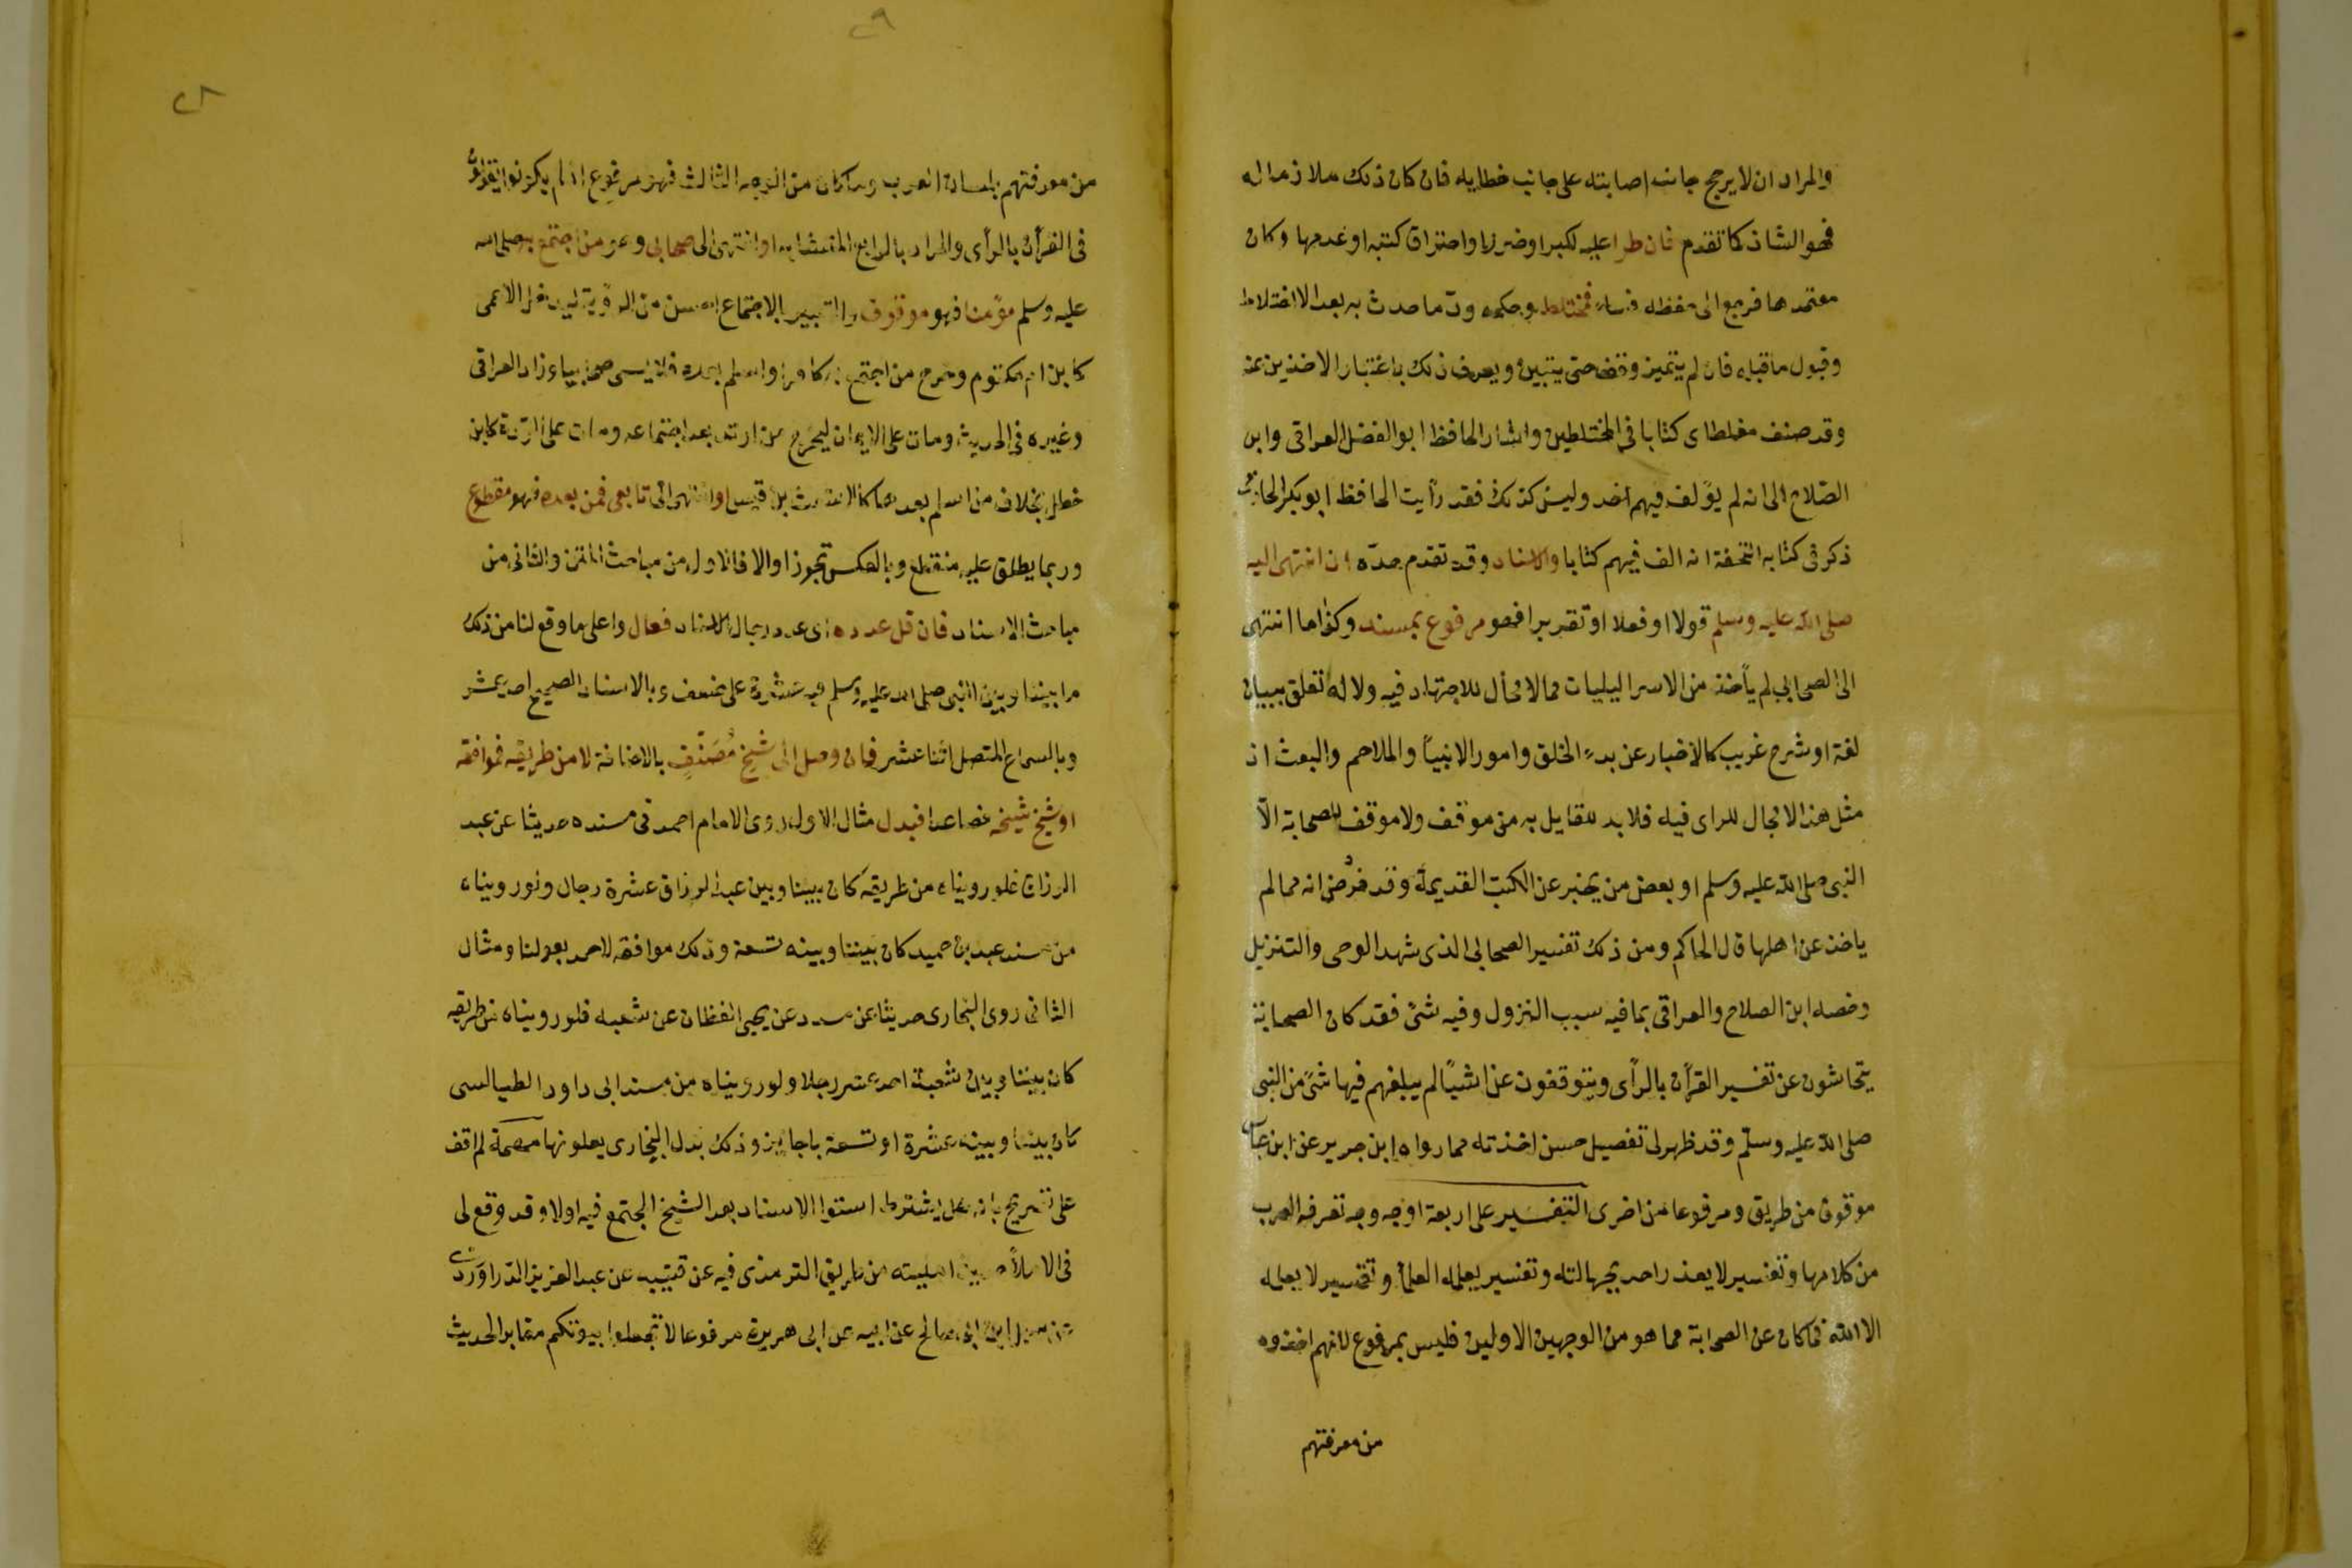 والمراد ان لا يرجح جانب اصابته على جانب خطايه فان كان ذلك ملازما له
فهو الشاذ كما تقدم فان طرا عليه لكبر او ضرر او احتراق كتبه او عدمها وكان
معتمدها فرجع الى حفظه فساء فمختلط وحكمه ردّ ما حدث به بعد الاختلاط
وقبول ما قبله فان لم يتميز وقف حتى يتبين ويعرف ذلك باعتبار الاخذين عنه
وقد صنف مغلطاى كتابا فى المختلطين واشار الحافظ ابو الفضل العراقى وابن
الصّلاح الى انه لم يؤلف فيهم احد وليس كذلك فقد رأيت الحافظ ابو بكر الحازمى
ذكر فى كتابه التحفة انه الف فيهم كتابا والاسناد وقد تقدم حدّه ان انتهى اليه
صلى الله عليه وسلم قولا او فعلا او تقريرا فهو مرفوع بمسند وكذا ما انتهى
الى الصحابى لم يأخذ من الاسراليليات مما لا مجال للاجتهاد فيه ولا له تعلق ببيان
لغة او شرح غريب كالاخبار عن بدء الخلق وامور الانبيآ والملاحم والبعث اذ
مثل هذا لا مجال للراى فيه فلا بد للقايل به من موقف ولا موقف للصحابة الّا
النبى صلى الله عليه وسلم او بعض من يخبر عن الكتب القديمة وقد فرض انه مما لم
ياخذ عن اهلها قال الحاكم ومن ذلك تفسير الصحابى الذى شهد الوحى والتنزيل
وخصه ابن الصلاح والعراقى بما فيه سبب النزول وفيه شئ فقد كان الصحابة
يتحاشون عن تفسير القرآن بالرأى ويتوقفون عن اشيآ لم يبلغهم فيها شئ من النبى
صلى الله عليه وسلّم وقد ظهر لى تفصيل حسن اخذته مما رواه ابن جرير عن ابن عباس
موقوف من طريق ومرفوعا من اخرى التفسير على اربعة اوجه وجه تعرفه العرب
من كلامها وتفسير لا يعذر احد بجهالته وتفسير يعلمه العلمآ وتفسير لا يعلمه
الا الله فما كان عن الصحابة مما هو من الوجهين الاولين فليس بمرفوع لانهم اخذوه
من معرفتهم
٢٩
٢٨
من معرفتهم بلسان العرب وما كان من الوجه الثالث فهو مرفوع اذ لم يكونوا يقولون
فى القرآن بالرأى والمراد بالرابع المتشابه او انتهى الى صحابى وهو من اجتمع به صلى الله
عليه وسلم مؤمنا فهو موقوف والتعبير بالاجتماع احسن من الرؤية ليدخل الاعمى
كابن ام مكتوم وخرج من اجتمع به كافرا واسلم بعده فلا يسمى صحابيا وزاد العراقى
وغيره فى الحديث ومات على الايمان ليخرج من ارتد بعد اجتماعه ومات على الردّة كابن
خطل بخلاف من اسلم بعدها كالاشعث بن قيس او انتهى الى تابعى فمن بعده فهو مقطوع
وربما يطلق عليه منقطع وبالعكس تجوزا والا فالاول من مباحث المتن والثانى من
مباحث الاسناد فان قل عدده اى عدد رجال الاسناد فعال واعلى ما وقع لنا من ذلك
ما بيننا وبين النبى صلى الله عليه وسلم فيه عشرة على ضعف وبالاسناد الصحيح احد عشر
وبالسماع المتصل اثنا عشر فان وصل الى شيخ مُصَنّفٍ بالاضافة لا من طريقه فموافقة
او شيخ شيخه فصاعدا فبدل مثال الاول روى الامام احمد فى مسنده حديثا عن عبد
الرزاق فلو رويناه من طريقه كان بيننا وبين عبد الرزاق عشرة رجال ولو رويناه
من مسند عبد بن حميد كان بيننا وبينه تسعة وذلك موافقة لاحمد بعولنا ومثال
الثانى روى البخارى حديثا عن مسدد عن يحيى القطان عن شعبه فلو رويناه من طريقه
كان بيننا وبين شعبة احد عشر رجلا ولو رويناه من مسند ابى داود الطيالسى
كان بيننا وبينه عشرة او تسعة باجازة وذلك بدل البخارى بعلو نها مهمة لم اقف
على تصريح بانه هل يشترط استوا الاسناد بعد الشيخ المجتمع فيه اولا وقد وقع لى
فى الاملآ حديث امليته من طريق الترمذى فيه عن قتيبه عن عبد العزيز الدّراوَردى
عن سهيل ابن ابى صالح عن ابيه عن ابى هريرة مرفوعا لا تجعلوا بيوتكم مقابر الحديث